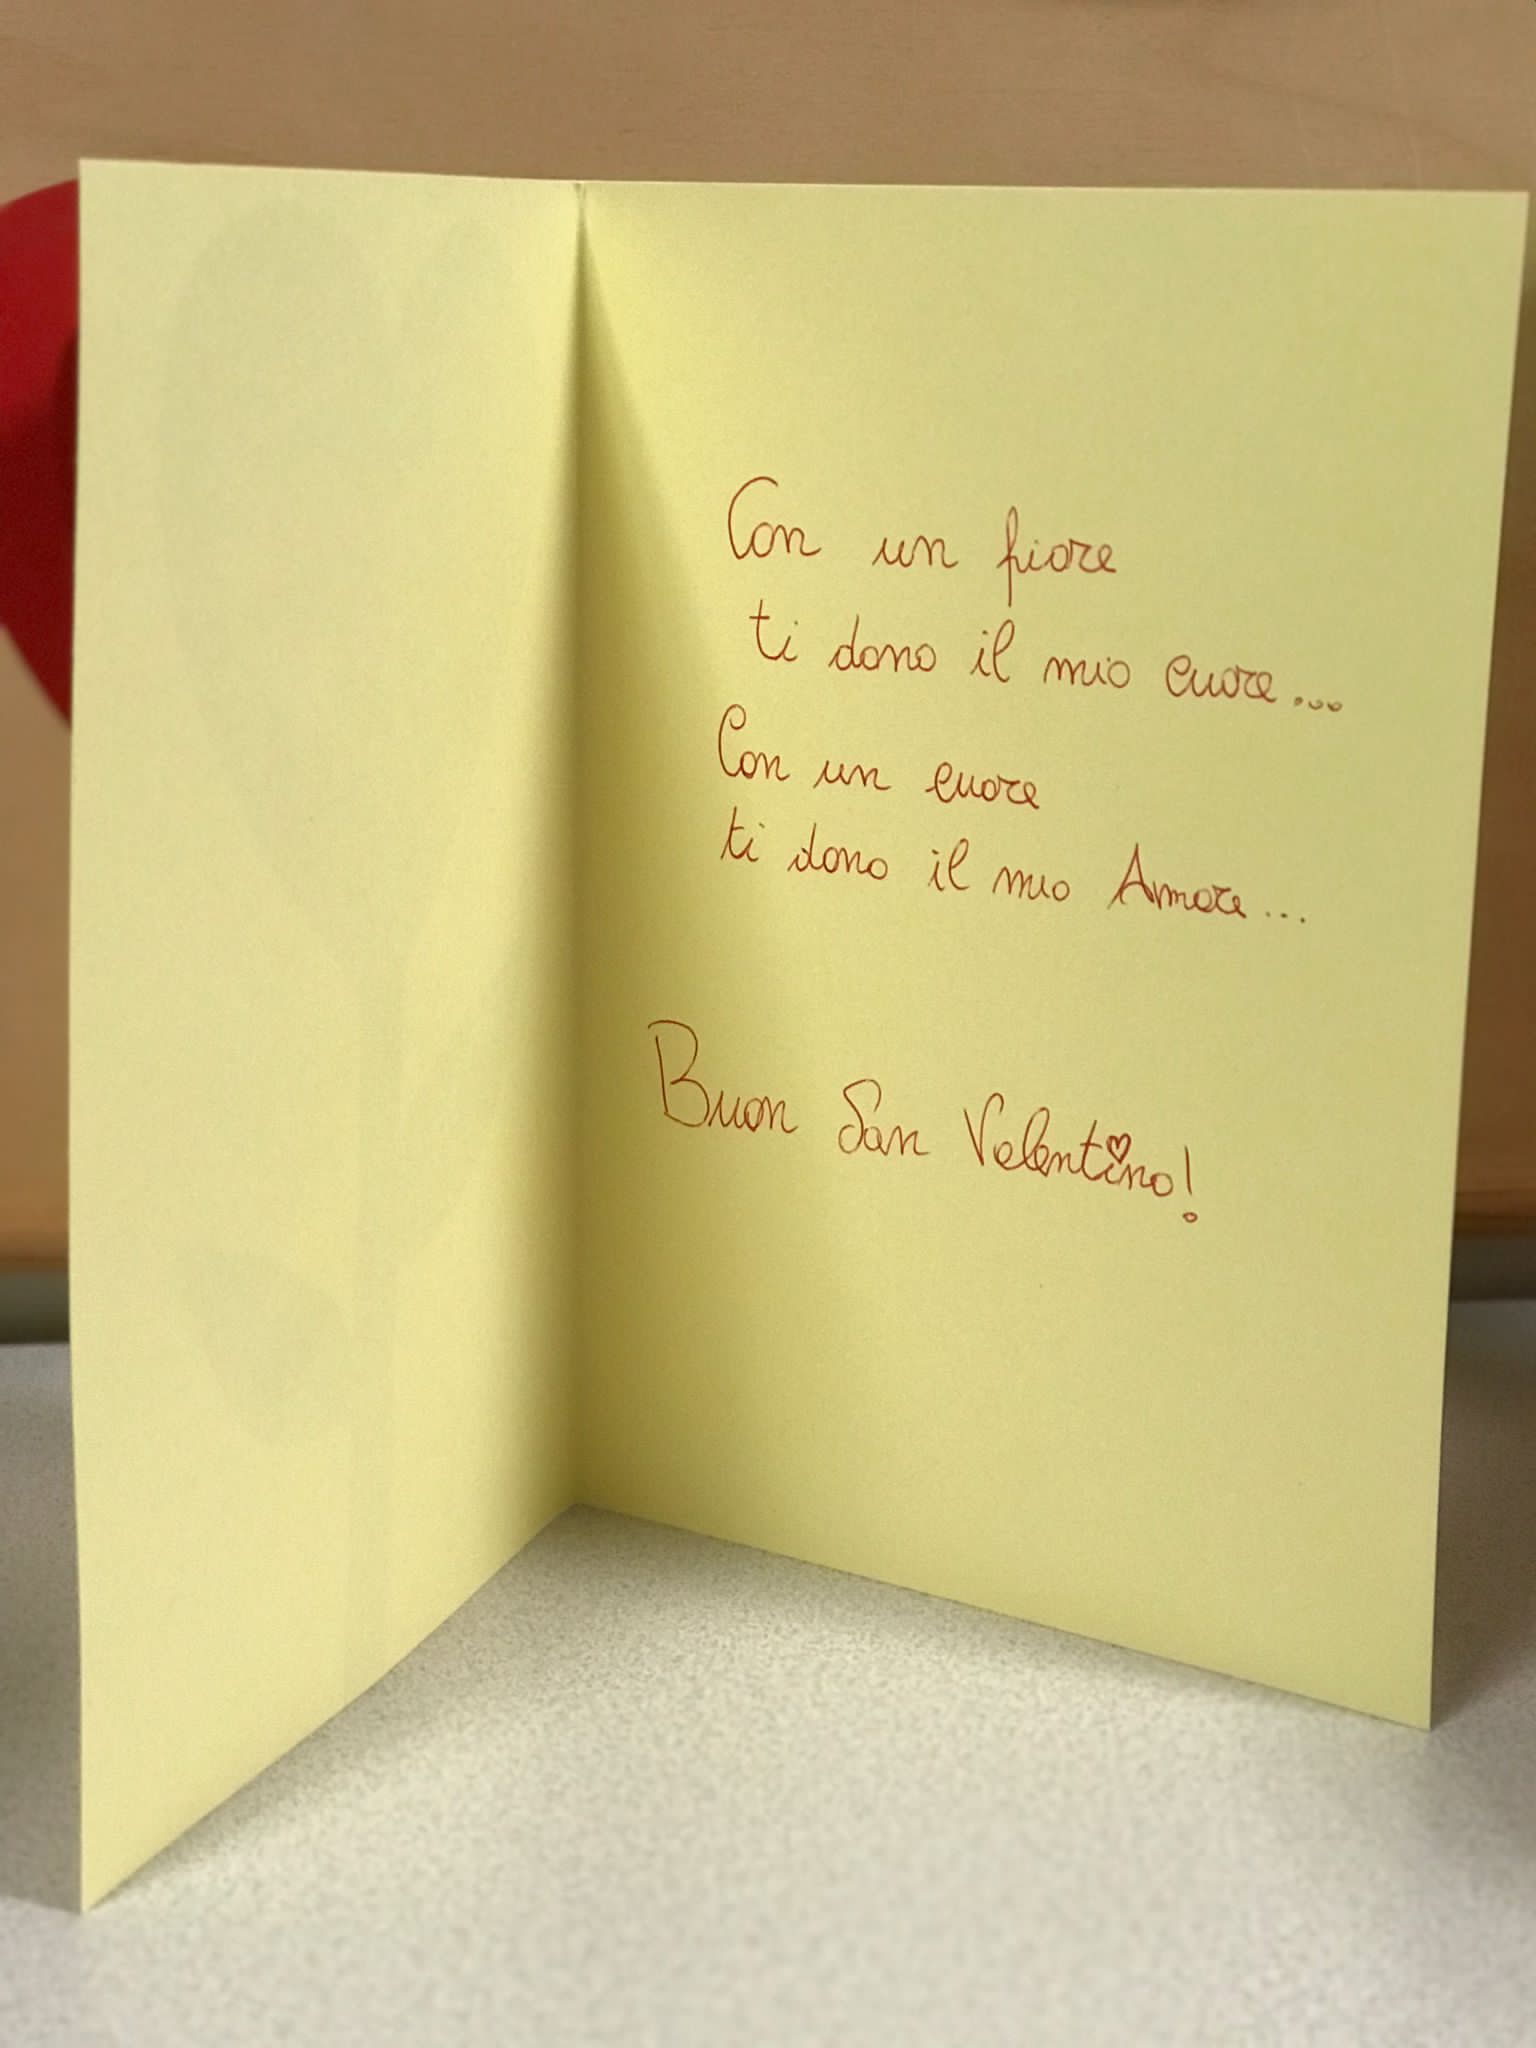 Con un fiore
ti dono il mio cuore...
Con un cuore
ti dono il mio Amore...
Buon San Valentino!